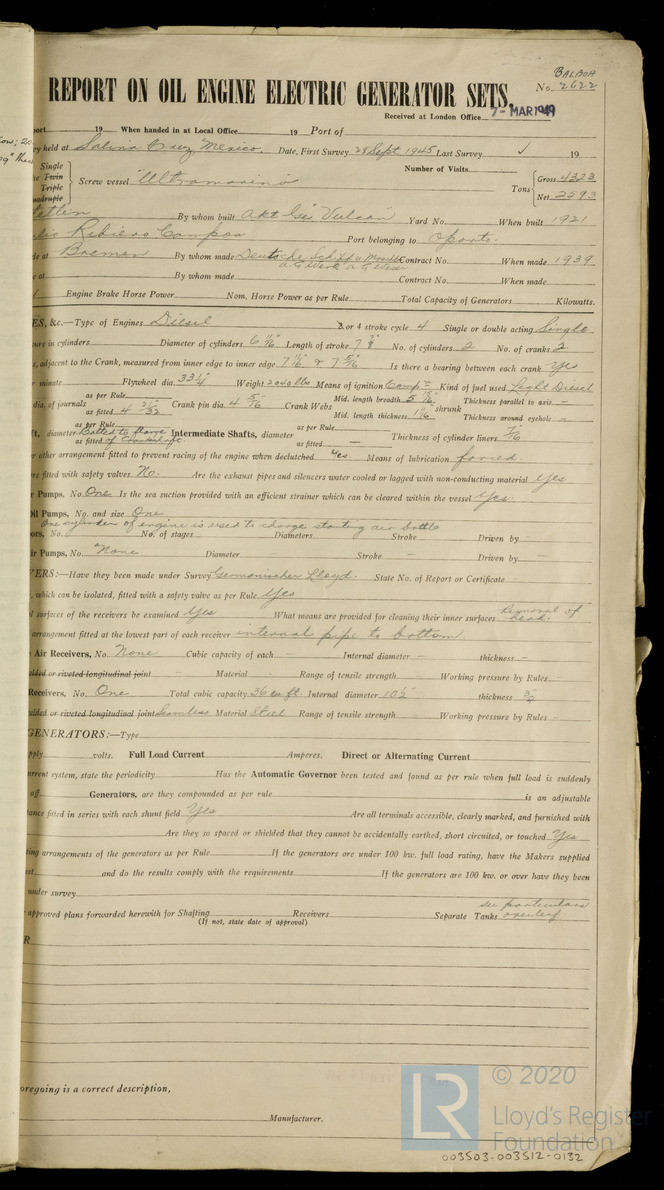 BALBOA
REPORT ON OIL ENGINE ELECTRIC GENERATOR SETS.
No. 2622
Received at London Office 7 - MAR 1949
port 19 When handed in at Local Office 19 Port of
ey held at Salina Cruz, Mexico. Date, First Survey 28 Sept 1945 Last Survey ✓ 19
Number of Visits
Single
Twin
Triple
Quadruple
Screw vessel "Ultramarino"
Tons Gross 4323
Net 2593
By whom built Akt Ges Vulcan Yard No. When built 1921
Ribiero Campos Port belonging to Oporto.
de at Bremen By whom made Deutsche Schiff u Contract No. When made 1939
de at By whom made Contract No. When made
Engine Brake Horse Power Nom. Horse Power as per Rule Total Capacity of Generators Kilowatts.
ES, &c.—Type of Engines Diesel 2 or 4 stroke cycle 4 Single or double acting Single
ure in cylinders Diameter of cylinders 6 11/16 Length of stroke 7 7/8 No. of cylinders 2 No. of cranks 2
s, adjacent to the Crank, measured from inner edge to inner edge Is there a bearing between each crank Yes
r minute Flywheel dia. 33 1/4 Weight 2040 lbs Means of ignition Comp= Kind of fuel used Light Diesel
dia. of journals as per Rule
as fitted 4 21/32 Crank pin dia. 4 5/16 Crank Webs Mid. length breadth shrunk Thickness parallel to axis –
Mid. length thickness 1 11/16 Thickness around eyehole –
ft, diameter as per Rule Bolted to flange
as fitted of crankshaft. Intermediate Shafts, diameter as per Rule
as fitted — Thickness of cylinder liners 7/16
r other arrangement fitted to prevent racing of the engine when declutched Yes Means of lubrication forced.
ers fitted with safety valves No. Are the exhaust pipes and silencers water cooled or lagged with non-conducting material Yes
r Pumps, No. One Is the sea suction provided with an efficient strainer which can be cleared within the vessel Yes.
Oil Pumps, No. and size One
One cylinder of engine is used to charge starting air bottle
ors, No. No. of stages Diameters Stroke Driven by –
ir Pumps, No. None Diameter – Stroke – Driven by –
VERS:—Have they been made under Survey Germanischer Lloyd. State No. of Report or Certificate –
, which can be isolated, fitted with a safety valve as per Rule Yes
l surfaces of the receivers be examined Yes What means are provided for cleaning their inner surfaces Removal of head.
arrangement fitted at the lowest part of each receiver internal pipe to bottom.
Air Receivers, No. None Cubic capacity of each – Internal diameter – thickness –
elded or riveted longitudinal joint – Material – Range of tensile strength – Working pressure by Rules –
Receivers, No. One Total cubic capacity 36 cu ft Internal diameter 10 1/2" thickness
elded or riveted longitudinal joint Seamless Material Steel Range of tensile strength Working pressure by Rules –
GENERATORS:—Type
pply volts. Full Load Current Amperes. Direct or Alternating Current
urrent system, state the periodicity Has the Automatic Governor been tested and found as per rule when full load is suddenly
off Generators, are they compounded as per rule is an adjustable
tance fitted in series with each shunt field Yes Are all terminals accessible, clearly marked, and furnished with
Are they so spaced or shielded that they cannot be accidentally earthed, short circuited, or touched Yes
ting arrangements of the generators as per Rule If the generators are under 100 kw. full load rating, have the Makers supplied
est and do the results comply with the requirements If the generators are 100 kw. or over have they been
under survey
see particulars
approved plans forwarded herewith for Shafting Receivers Separate Tanks overleaf
(If not, state date of approval)
R
oregoing is a correct description,
Manufacturer.
LR © 2020
Lloyd's Register
Foundation
003503-003512-0132